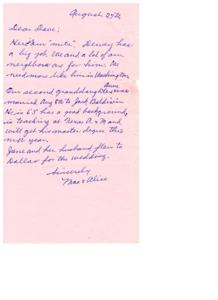 August 27th
Dear Dave:
Dewey has
a big job. We and a lot of our
neighbors are for him. We
need more like him in Washington
Anne
Our second granddaughter was
married Aug 8th to Jack Baldwin
He is 25 has a good background
is teaching at Texas A & M and
will get his master degree this
next year.
Jane and her husband flew to
Dallas for the wedding.
Sincerely
Mac & Alice